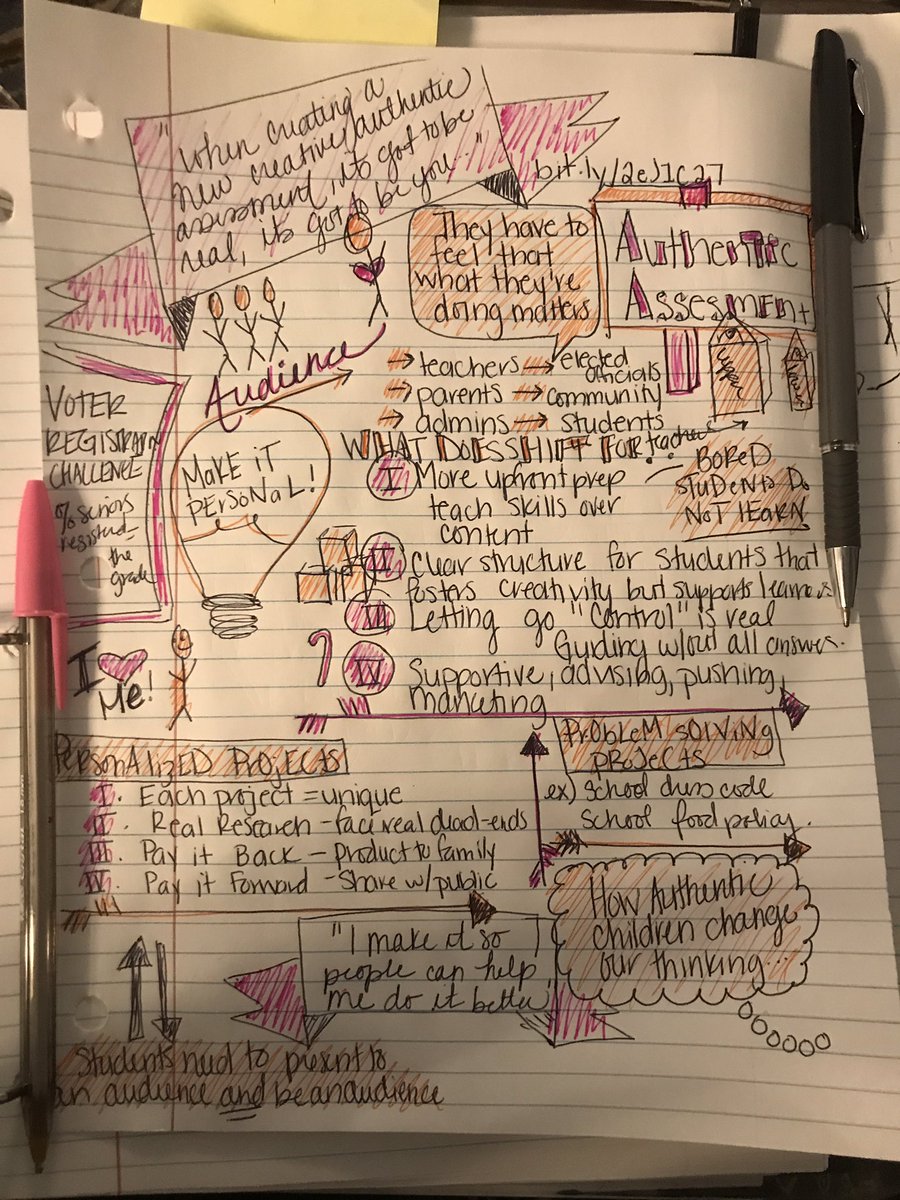 "When creating a
new creative/authentic
assessment, it's got to be
real, it's got to be you..."
bit.ly/2eJ1C27
They have to
feel that
what they're
doing matters
Authentic
Assesment
Audience
→ teachers → elected officials
→ parents → community
→ admins → students
VOTER
REGISTRATION
CHALLENGE
% seniors
registered =
the grade
MAKE iT
PERSONAL!
WHAT DOES SHIFT FOR teachers
BORED
STUDENTS DO
NOT lEARN
I More upfront prep –
teach skills over
content
II Clear structure for students that
fosters creativity but supports learners
III Letting go "Control" is real
Guiding w/out all answers.
IV Supportive, advising, pushing,
marketing
I ♥
Me!
PERSONAlizED PROJECTS
I. Each project = unique
II. Real Research - face real dead-ends
III. Pay it Back - product to family
IV. Pay it Forward - Share w/public
PRObleM SOlViNg
PROJECTS
ex) School dress code
School food policy.
How Authentic
children change
our thinking...
"I make it so
people can help
me do it better"
Students need to present to
an audience and be an audience